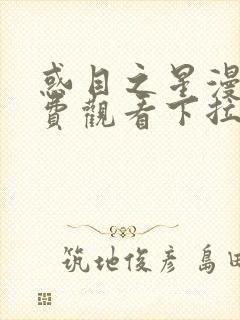 惑目之星漫
費觀看下拉
筑地俊彦 島田